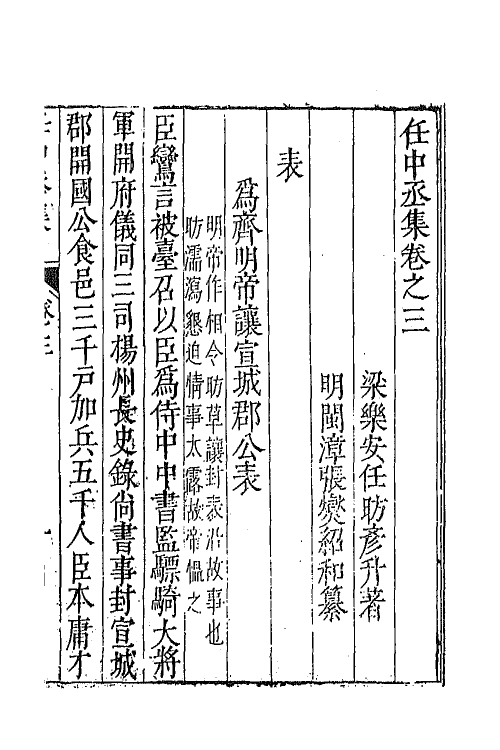 任中丞集卷之三
梁樂安任昉彥升著
明閩漳張燮紹和纂
表
爲齊明帝讓宣城郡公表
明帝作相令昉草讓封表沿故事也
昉濡瀉懇迫情事太露故帝慍之
臣鸞言被臺召以臣爲侍中中書監驃騎大將
軍開府儀同三司楊州長史錄尚書事封宣城
郡開國公食邑三千戸加兵五千人臣本庸才